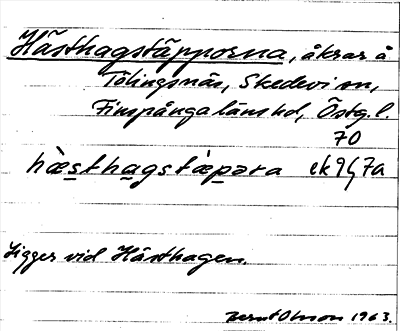 Hästhagstäpporna, åkrar å
Tölingsnäs, Skedevi sn,
Finspånga läns hd, Östg. l.
70
hæ̀sthagstæ̀pəra ek 9G 7a
Ligger vid Hästhagen.
Bernt Olsson 1963.